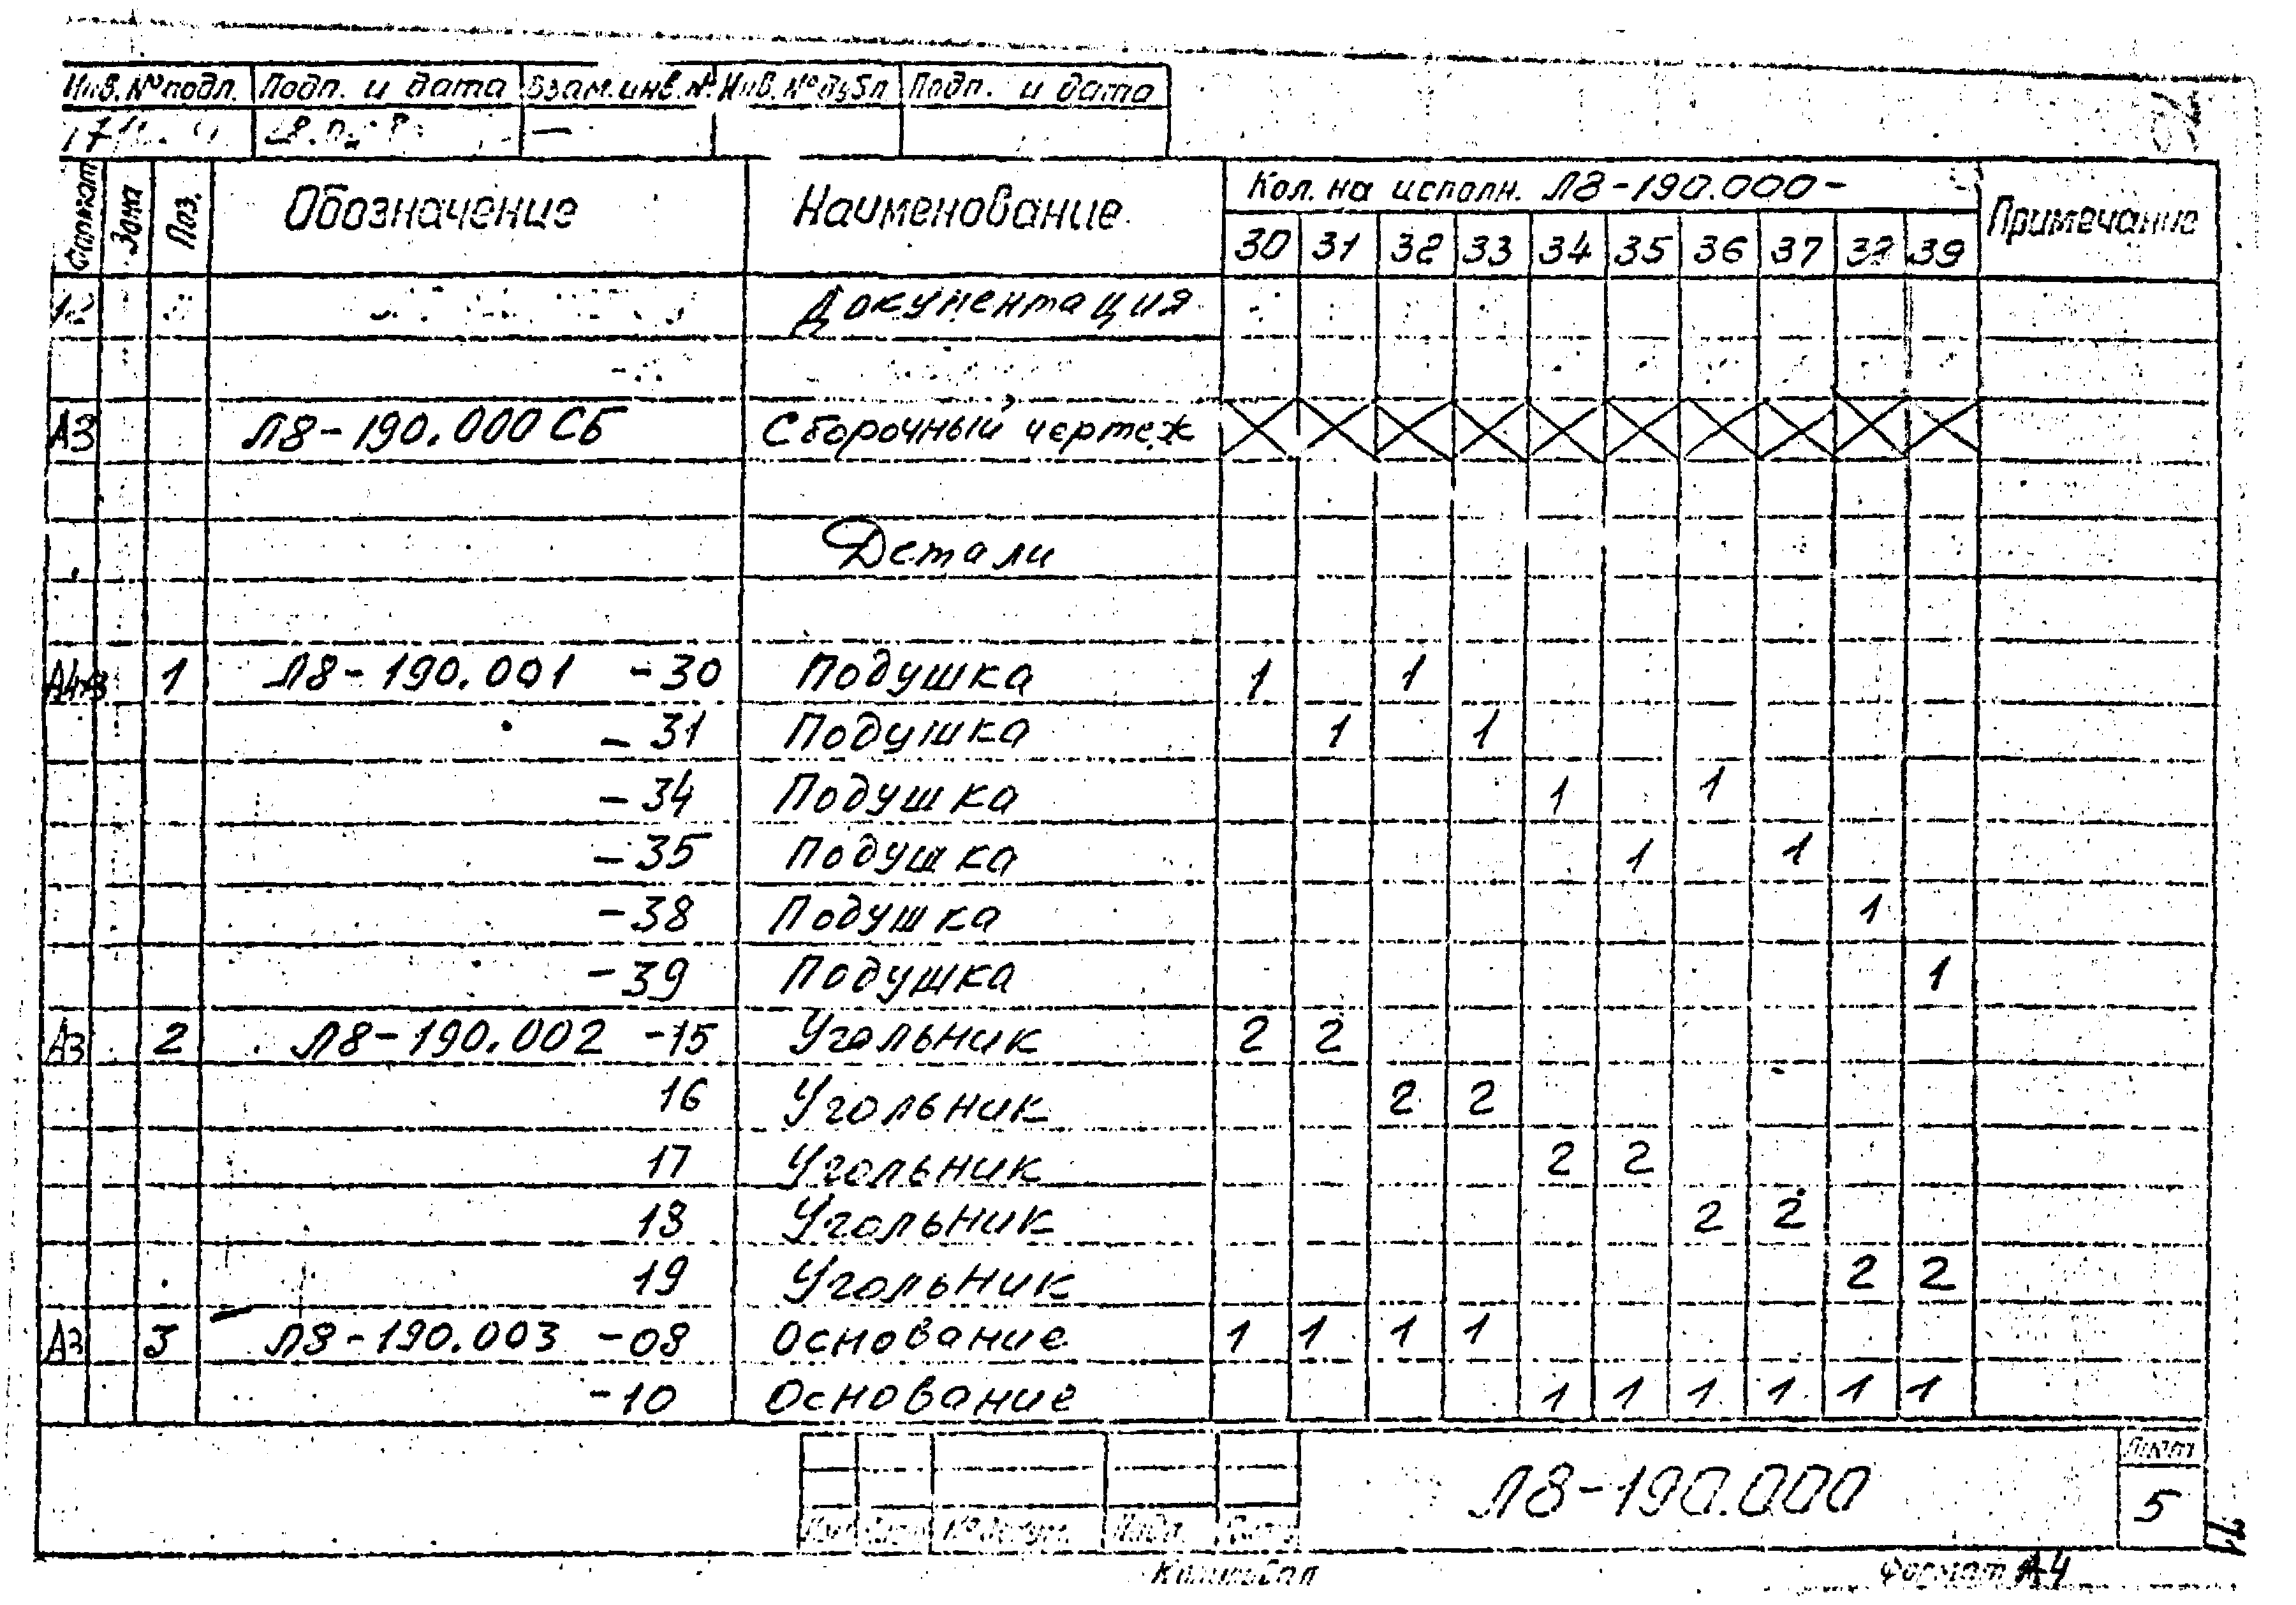 Инв. № подл. Подп. и дата Взам. инв. № Инв. № дубл Подп. и дата
Формат Зона Поз. Обозначение Наименование Кол. на исполн. Л8-190.000- Примечание
30 31 32 33 34 35 36 37 38 39
Документация
А3 Л8-190.000 СБ Сборочный чертеж
Детали
А4х3 1 Л8-190.001 -30 Подушка 1 1
-31 Подушка 1 1
-34 Подушка 1 1
-35 Подушка 1 1
-38 Подушка 1
-39 Подушка 1
А3 2 Л8-190.002 -15 Угольник 2 2
16 Угольник 2 2
17 Угольник 2 2
18 Угольник 2 2
19 Угольник 2 2
А3 3 Л8-190.003 -08 Основание 1 1 1 1
-10 Основание 1 1 1 1 1 1
Л8-190.000
Лист
5
Изм Лист № докум. Подп. Дата
Копировал Формат А4